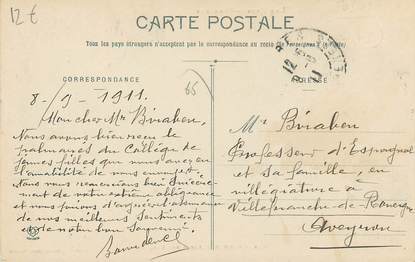 12 €
CARTE POSTALE
Tous les pays étrangers n'acceptent pas la correspondance au recto (se renseigner à la Poste)
CORRESPONDANCE
ADRESSE
65
8-/9-1911.
Mon cher Mr Biraben,
Nous avons bien reçu le
palmarès du Collège de
jeunes filles que vous avez eu
l'amabilité de nous envoyer.
Nous vous remercions bien sincère-
ment de votre extrême obligeance
et vous prions d'agréer l'assurance
de nos meilleurs sentiments
et de notre bon souvenir.
Mr Biraben
Professeur d'Espagnol
et sa famille, en
villégiature à
Villefranche-de-Rouergue
Aveyron